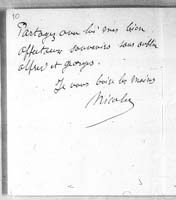 10
Partagez avec lui mes bien
affectueux souvenirs sans oublier
alfred et georges.
Je vous baise les mains
Nicolas